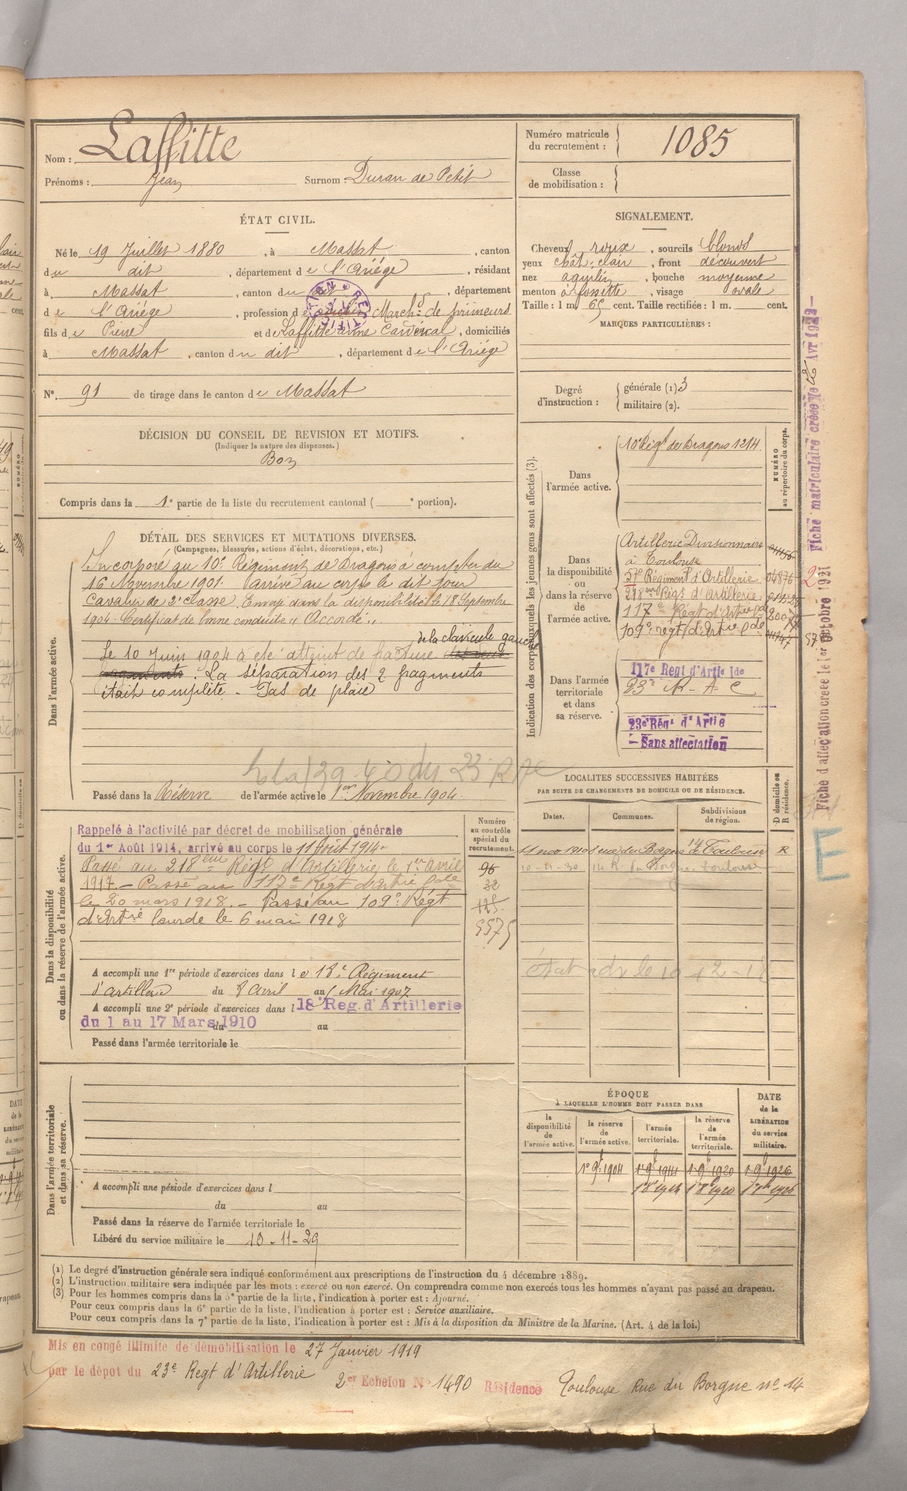 Nom : Laffitte
Prénoms : Jean Surnom : Duran de Petit
Numéro matricule
du recrutement : 1085
Classe
de mobilisation :
ÉTAT CIVIL.
Né le 19 Juillet 1880, à Massat, canton
du dit, département de l'Ariège, résidant
à Massat, canton du dit, département
de l'Ariège, profession de March.d de primeurs
fils de Pierre et de Laffitte Anne Cardinal, domiciliés
à Massat, canton du dit, département de l'Ariège
N° 91 de tirage dans le canton de Massat
SIGNALEMENT.
Cheveux roux, sourcils blonds
yeux chât. clair, front découvert
nez aquilin, bouche moyenne
menton à fossette, visage ovale
Taille : 1 m. 65 cent. Taille rectifiée : 1 m. cent.
MARQUES PARTICULIÈRES :
Degré
d'instruction :
générale (1) 3
militaire (2).
DÉCISION DU CONSEIL DE REVISION ET MOTIFS.
(Indiquer la nature des dispenses.)
Bon
Compris dans la 1e partie de la liste du recrutement cantonal ( e portion).
DÉTAIL DES SERVICES ET MUTATIONS DIVERSES.
(Campagnes, blessures, actions d'éclat, décorations, etc.)
Dans l'armée active.
Incorporé au 10e Régiment de Dragons à compter du
16 Novembre 1901. Arrivé au corps le dit jour
Cavalier de 2e classe. Envoyé dans la disponibilité le 18 Septembre
1904. Certificat de bonne conduite "Accordé"
Le 10 Juin 1904 a été atteint de fracture de la clavicule gauche
. La séparation des 2 fragments
était complète - Pas de plaie
Passé dans la Réserve de l'armée active le 1er Novembre 1904
Indication des corps auxquels les jeunes gens sont affectés (3).
NUMÉRO
au répertoire du corps.
Dans
l'armée active.
10e Régt de Dragons 1214
Dans
la disponibilité
ou
dans la réserve
de
l'armée active.
Artillerie Divisionnaire
à Toulouse
57e Régiment d'Artillerie
218eme Régt d'Artillerie
117e Régt d'Artie lde
109e régt d'Artie lde
Dans l'armée
territoriale
et dans
sa réserve.
117e Regt d'Artie lde
23e R.A.C
23e Régt d'Artie
- Sans affectation
Dans la disponibilité
ou dans la réserve de l'armée active.
Numéro
au contrôle
spécial du
recrutement.
Rappelé à l'activité par décret de mobilisation générale
du 1er Août 1914, arrivé au corps le 11 Août 1914.
Passé au 218eme Régt d'Artillerie le 1er Avril
1917. - Passé au 117e Régt d'artie lde
le 20 mars 1918. - Passé au 109e Régt
d'artie lourde le 6 mai 1918
A accompli une 1re période d'exercices dans le 18e Régiment
d'Artillerie du 8 Avril au 1 Mai 1907
A accompli une 2e période d'exercices dans l 18e Reg. d'Artillerie
du 1 au 17 Mars 1910 du au
Passé dans l'armée territoriale le
LOCALITÉS SUCCESSIVES HABITÉES
PAR SUITE DE CHANGEMENTS DE DOMICILE OU DE RÉSIDENCE.
Dates. Communes. Subdivisions de région. D domicile ou R résidence.
14 rue du Borgne Toulouse R
ÉPOQUE
À LAQUELLE L'HOMME DOIT PASSER DANS
la disponibilité de l'armée active. la réserve de l'armée active. l'armée territoriale. la réserve de l'armée territoriale.
DATE
de la
LIBÉRATION
du service
militaire.
1er 9b 1904 1er 9b 1914 1er 9b 1920 1er 9b 1926
Dans l'armée territoriale
et dans sa réserve.
A accompli une période d'exercices dans l
du au
Passé dans la réserve de l'armée territoriale le
Libéré du service militaire le 10-11-29
(1) Le degré d'instruction générale sera indiqué conformément aux prescriptions de l'instruction du 4 décembre 1889.
(2) L'instruction militaire sera indiquée par les mots : exercé ou non exercé. On comprendra comme non exercés tous les hommes n'ayant pas passé au drapeau.
(3) Pour les hommes compris dans la 5e partie de la liste, l'indication à porter est : Ajourné.
Pour ceux compris dans la 6e partie de la liste, l'indication à porter est : Service auxiliaire.
Pour ceux compris dans la 7e partie de la liste, l'indication à porter est : Mis à la disposition du Ministre de la Marine. (Art. 4 de la loi.)
Mis en congé illimité de démobilisation le 27 Janvier 1919
par le dépot du 23e Regt d'Artillerie 2er Echelon N° 1490 Résidence Toulouse Rue du Borgne no 14
Fiche d'affectation créée le 1er Octobre 1921
Fiche matriculaire créée le
E